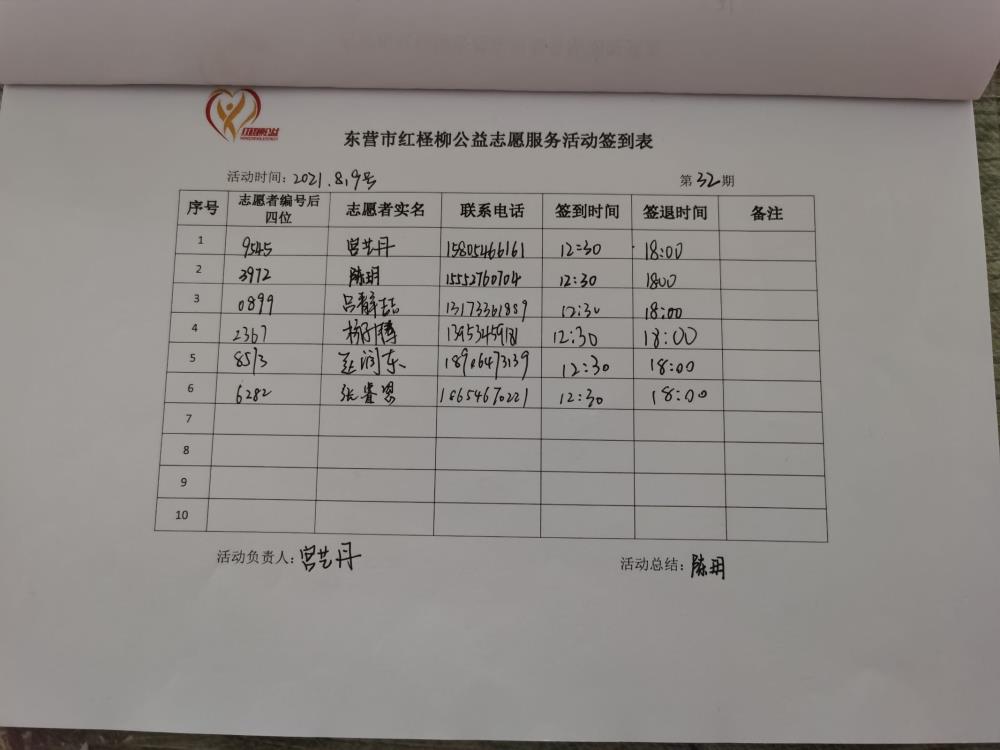 红柽柳公益
东营市红柽柳公益志愿服务活动签到表
活动时间：2021.8.9号 第32期
序号 志愿者编号后四位 志愿者实名 联系电话 签到时间 签退时间 备注
1 9545 宫艺丹 15805466161 12:30 18:00
2 3972 陈玥 15552760704 12:30 1800
3 0899 吕静喆 13173361889 12:30 18:00
4 2367 12:30 18:00
5 8513 赵润东 18906473139 12:30 18:00
6 6282 12:30 18:00
7
8
9
10
活动负责人：宫艺丹 活动总结：陈玥